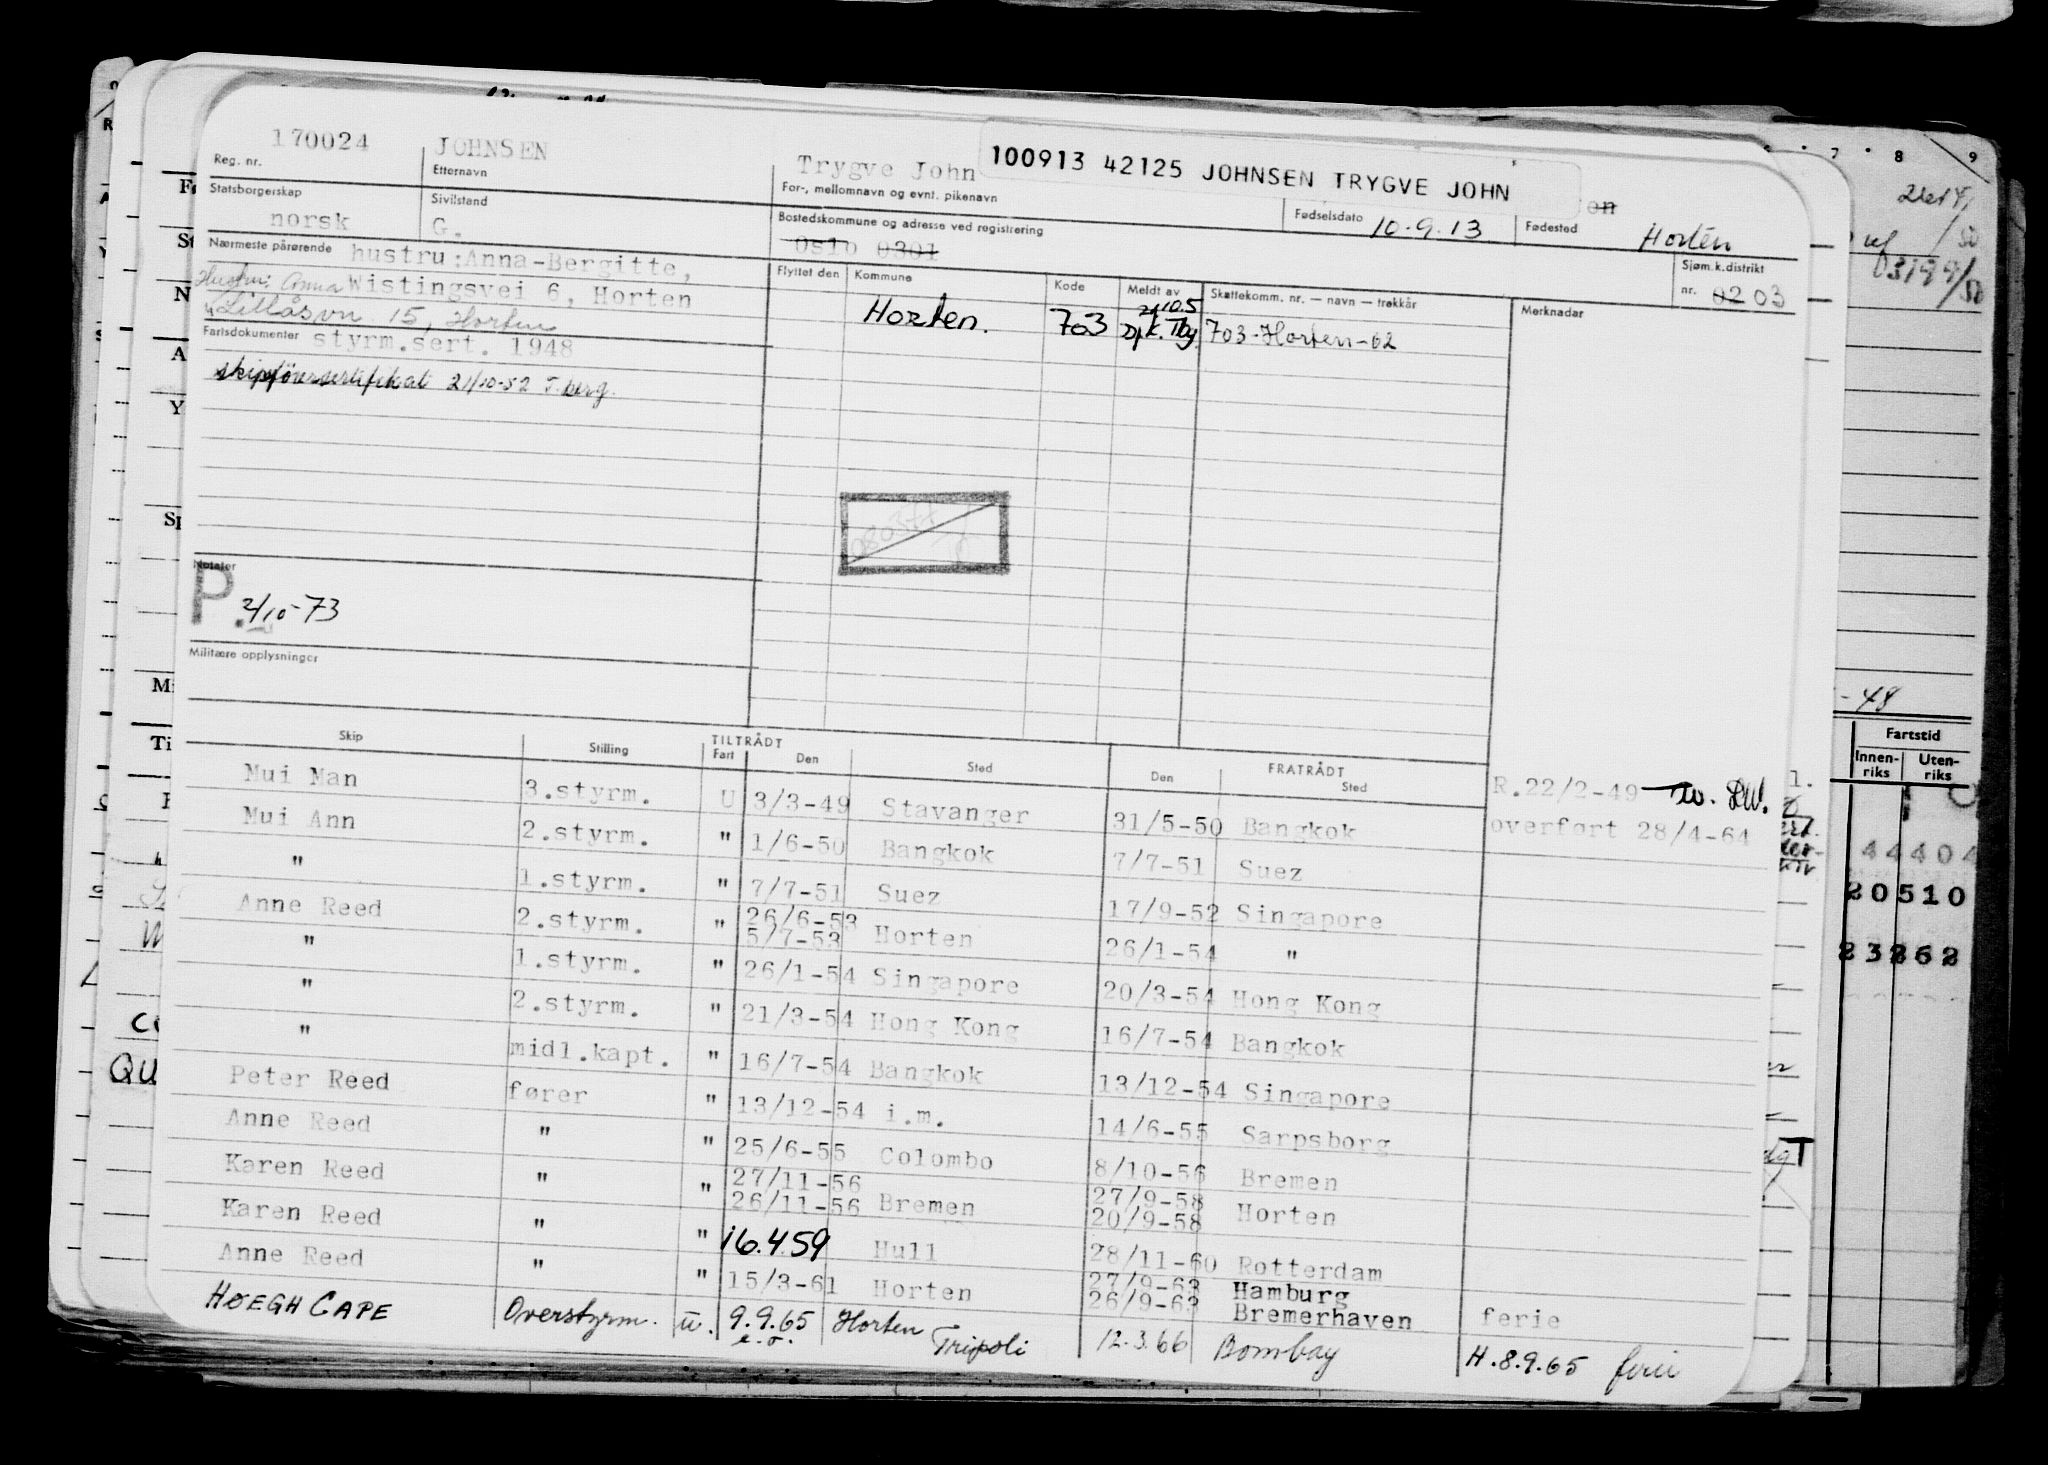 170024 JOHNSEN Trygve John 100913 42125 JOHNSEN TRYGVE JOHN
Reg. nr. Etternavn For-, mellomnavn og evnt. pikenavn on
Statsborgerskap Sivilstand Bostedskommune og adresse ved registrering Fødselsdato 10-9.13 Fødested Horten
norsk G. Oslo 0301
Nærmeste pårørende hustru:Anna-Bergitte, Flyttet den Kommune Kode Meldt av Skattekomm. nr. — navn — trekkår Sjøm.k.distrikt
nr. 02 03
Hustru: Anna Wistingsvei 6, Horten Merknader
Lillåsvn 15, Horten Horten. 703 703-Horten-62
Fartsdokumenter styrm.sert. 1948
skipsførersertifikat 21/10-52 T.berg.
Notater
P. 2/10-73
Militære opplysninger
Skip Stilling TILTRÅDT FRATRÅDT
Fart Den Sted Den Sted
Mui Man 3.styrm. U 3/3-49 Stavanger 31/5-50 Bangkok R.22/2-49
Mui Ann 2.styrm. " 1/6-50 Bangkok 7/7-51 Suez overført 28/4-64
" 1.styrm. " 7/7-51 Suez 17/9-52 Singapore
Anne Reed 2.styrm. " 26/6-53
5/7-53 Horten 26/1-54 "
" 1.styrm. " 26/1-54 Singapore 20/3-54 Hong Kong
" 2.styrm. " 21/3-54 Hong Kong 16/7-54 Bangkok
" midl.kapt. " 16/7-54 Bangkok 13/12-54 Singapore
Peter Reed fører " 13/12-54 i.m. 14/6-55 Sarpsborg
Anne Reed " " 25/6-55 Colombo 8/10-56 Bremen
Karen Reed " " 27/11-56 27/9-58
26/11-56 Bremen 20/9-58 Horten
Karen Reed " " 16.459 Hull 28/11-60 Rotterdam
Anne Reed " " 15/3-61 Horten 27/9-63 Hamburg
26/9-63 Bremerhaven ferie
HØEGH CAPE Overstyrm. u. 9.9.65 Horten 12.3.66 Bombay H.8.9.65 ferie
e.o. Tripoli
7 8 9
-48
Fartstid
Innen-
riks Uten-
riks
44404
20510
QU
T